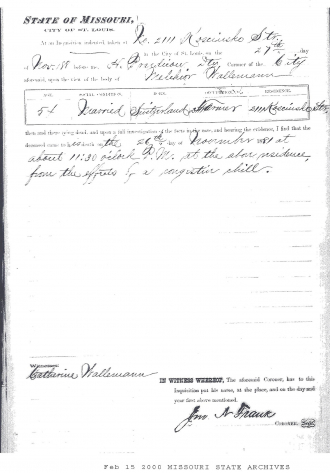 STATE OF MISSOURI,
CITY OF ST. LOUIS.
At an Inquisition ordained, taken at No. 2111 Kosciusko Str.
in the City of St. Louis on the 27th day
of Nov. 188 before me, H. Dty Coroner of the City
aforesaid, upon view of the body of Melchior Wallemann
AGE. SOCIAL CONDITION. BORN. OCCUPATION. RESIDENCE.
51 Married Switzerland 2111 Kosciusko Str.
then and there lying dead, and upon a full investigation of the facts in the case, and hearing the evidence, I find that the
deceased came to his death on the 26th day of November 1881 at
about 11:30 o'clock P.M. at the abov residence,
from the effects of a congestiv chill.
WITNESSES:
Catharine Wallemann
IN WITNESS WHEREOF, The aforesaid Coroner, has to this
Inquisition put his name, at the place, and on the day and
year first above mentioned.
Jno N Frank
CORONER
Feb 15 2000 MISSOURI STATE ARCHIVES